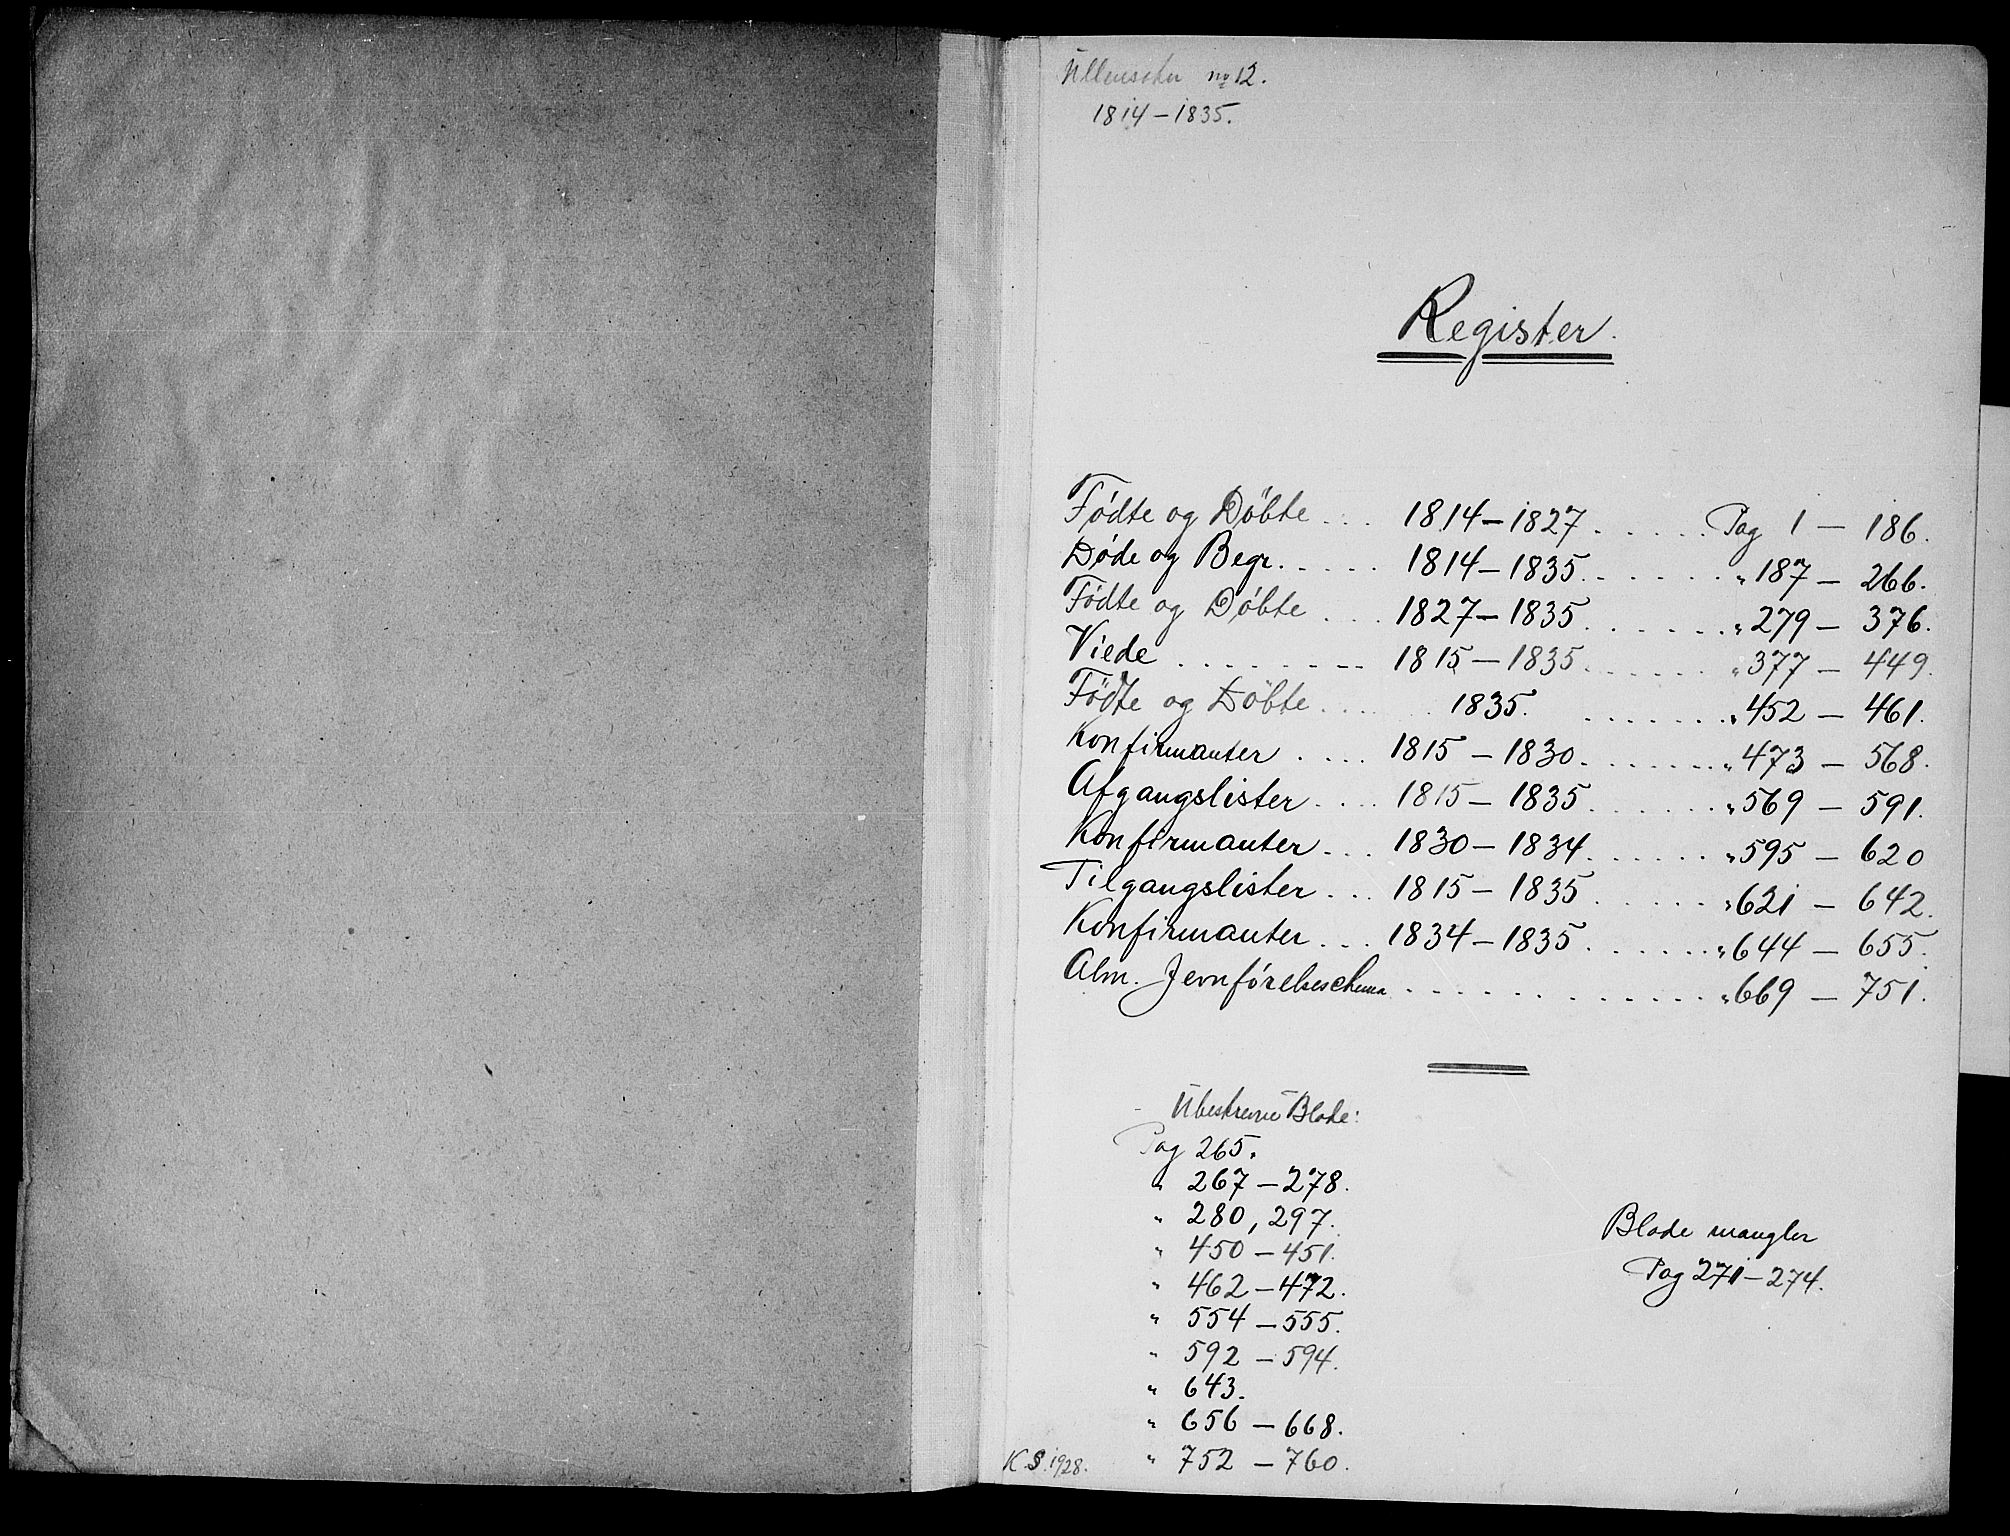 Ullensaker no 12.
1814 – 1835.
Register.
Födte og Döbte . . . 1814 – 1827 . . . . . Pag 1 – 186.
Døde og Begr. . . . . . 1814 – 1835. . . . . . . " 187 – 266.
Födte og Döbte . . . 1827 – 1835. . . . . . . " 279 – 376.
Viede . . . . . . . . . 1815 – 1835. . . . . . . " 377 – 449.
Födte og Döbte . . . . 1835. . . . . . . . " 452 – 461.
Konfirmanter . . . . 1815 – 1830. . . . . . . " 473 – 568.
Afgangslister . . . . 1815 – 1835. . . . . . . " 569 – 591.
Konfirmanter . . . 1830 – 1834. . . . . . . " 595 – 620
Tilgangslister . . . 1815 – 1835 . . . . . . " 621 – 642.
Konfirmanter . . . 1834 – 1835 . . . . . . . " 644 – 655.
Alm. Jevnförelseschema . . . . . . . . . . . . " 669 – 751.
Ubeskrevne Blade:
Pag 265.
" 267 – 278.
" 280, 297.
" 450 – 451.
" 462 – 472.
" 554 – 555.
" 592 – 594.
" 643.
" 656 – 668.
" 752 – 760.
Blade mangler
Pag 271 – 274.
K S. 1928.